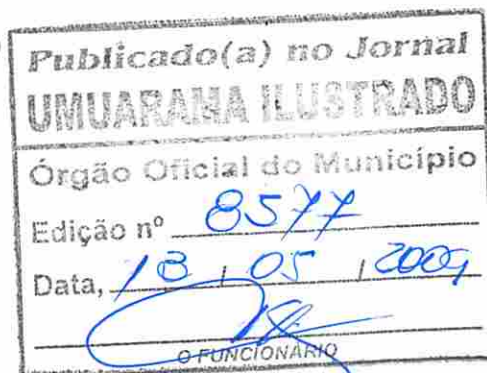 Publicado(a) no Jornal
UMUARAMA ILUSTRADO
Órgão Oficial do Município
Edição nº 8577
Data, 13 / 05 / 2009
O FUNCIONÁRIO